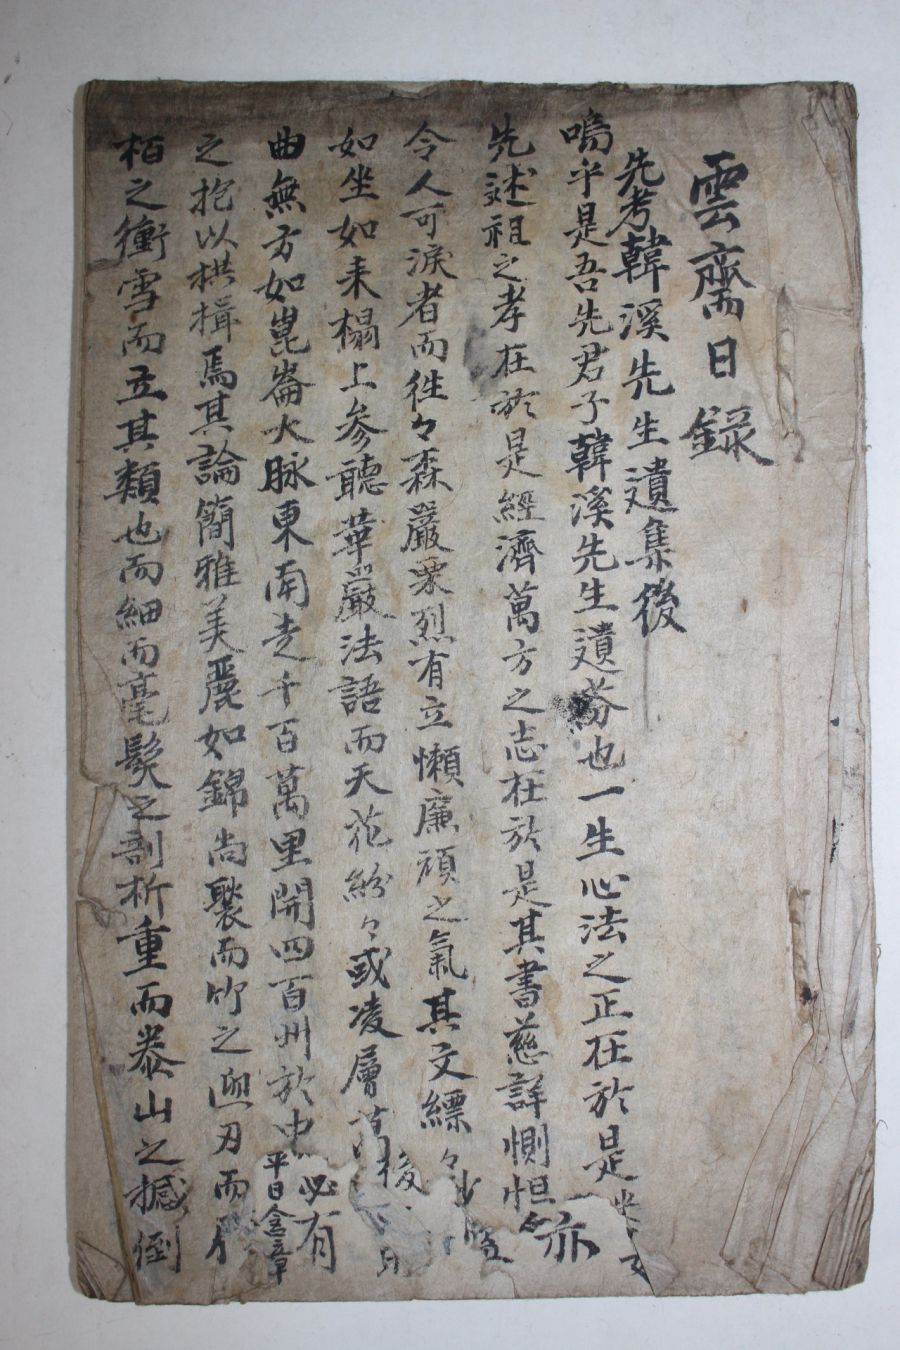 雲齋日錄
先考韓溪先生遺集後
嗚乎是吾先君子韓溪先生遺芬也一生心法之正在於是
先述祖之孝在於是經濟萬方之志在於是其書慈詳惻怛亦
令人可淚者而徃々森嚴栗烈有立懶廉頑之氣其文縹々
如坐如来榻上参聽華嚴法語而天花紛々或凌層
曲無方如崑崙大脉東南走千百萬里開四百州於中必有
平日含章
之抱以拱揖焉其論簡雅美麗如錦尚褧而竹之迎刃而
栢之衝雪而立其類也而細而毫髮之剖析重而泰山之撼倒